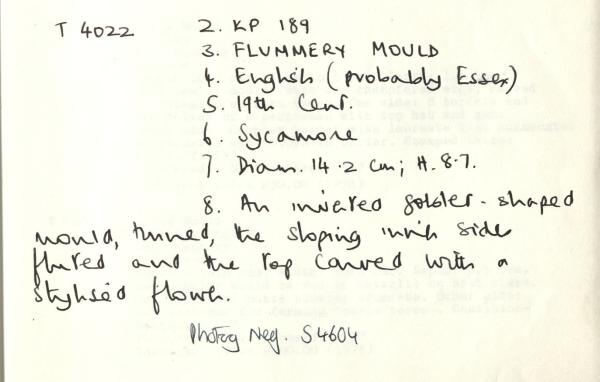 T 4022 2. KP 189
3. FLUMMERY MOULD
4. English (probably Essex)
5. 19th Cent.
6. Sycamore
7. Diam. 14.2 cm; H. 8.7.
8. An inverted goblet-shaped
mould, turned, the sloping inner sides
fluted and the top carved with a
stylised flower.
Photog Neg. S4604